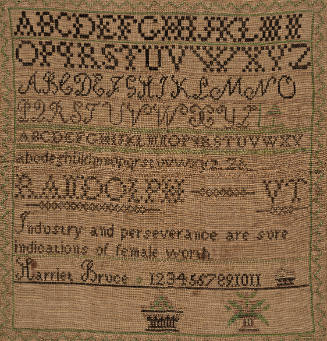 ABCDEFGHIJKLMN
OPQRSTUVWXYZ
ABCDEFGHIKLMNO
PQRSTUVW
ABCDEFGHIJKLMNOPQRSTUVWXY
abcdefghijklmnopqrstuvwxyz
RANDOLPH VT
Industry and perseverance are sure
indications of female worth
Harriet Bruce 1234567891011